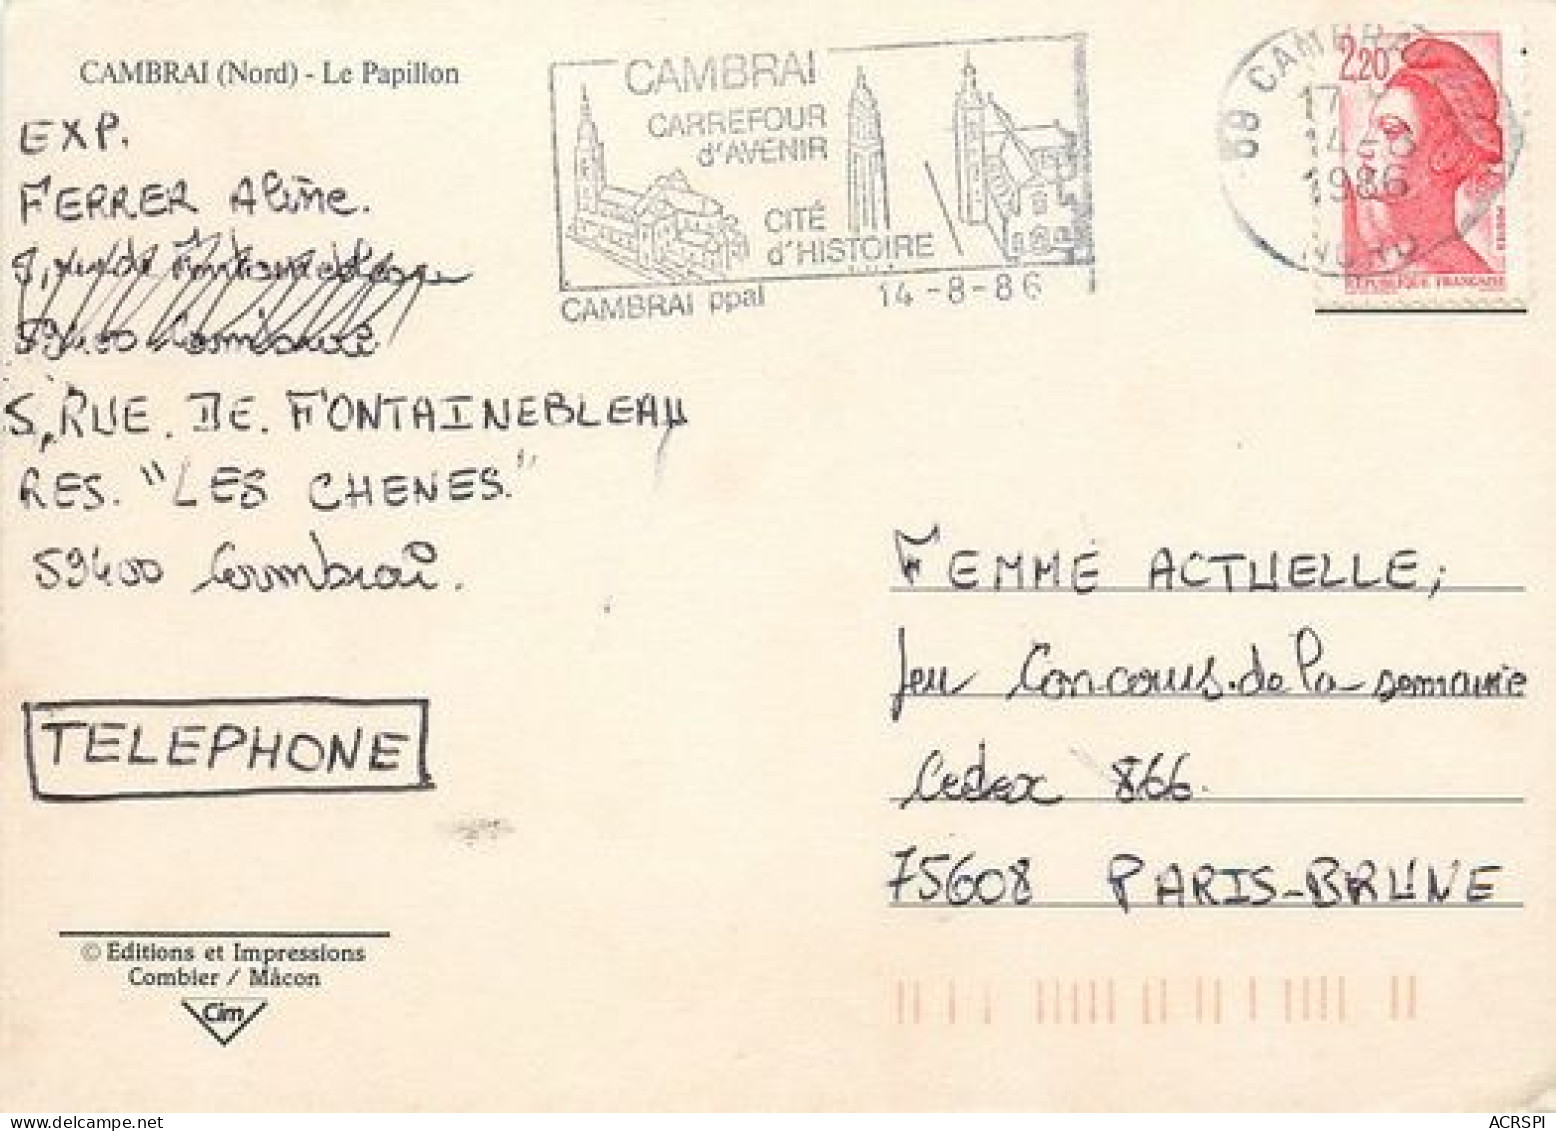 CAMBRAI (Nord) - Le Papillon
EXP.
FERRER Aline.
59400 Cambrai
5, RUE. DE. FONTAINEBLEAU
RES. "LES CHENES."
59400 Cambrai.
TELEPHONE
© Editions et Impressions
Combier / Mâcon
Cim
CAMBRAI
CARREFOUR
d'AVENIR
CITÉ
d'HISTOIRE
CAMBRAI ppal
14-8-86
59 CAMBRAI
17 H
14-8
1986
NORD
2,20
POSTES
RÉPUBLIQUE FRANÇAISE
FEMME ACTUELLE,
Jeu Concours.de la semaine
Cedex 866.
75608 PARIS-BRUNE
ACRSPI